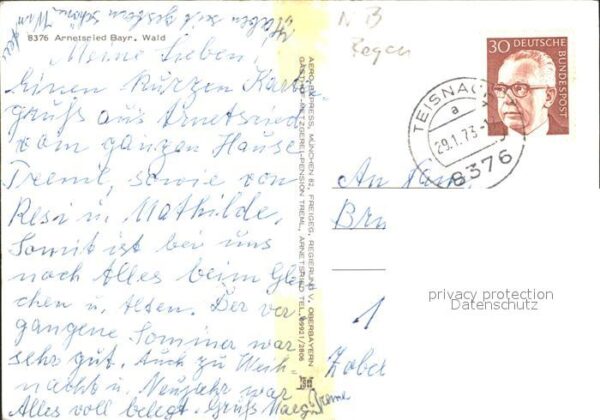 Haben seit gestern schöne Win
ter
8376 Arnetsried Bayr. Wald
Meine Lieben,
Einen kurzen Karten
gruß aus Arnetsried
vom ganzen Hause
Treml, sowie von
Resi u. Mathilde.
Somit ist bei uns
noch Alles beim Glei
chen u. Alten. Der ver
gangene Sommer war
sehr gut. Auch zu Weih
nachts u. Neujahr war
Alles voll belegt. Gruß
AERO-EXPRESS, MÜNCHEN 82, FREIGEG. REGIERUNG V. OBERBAYERN
GASTHOF-METZGEREI-PENSION TREML, ARNETSRIED TEL. 09921/2806
NB
Regen
30 DEUTSCHE
BUNDESPOST
TEISNACH
a
29.1.73-1
8376
An Fam.
Bru
1
Zobel
privacy protection
Datenschutz